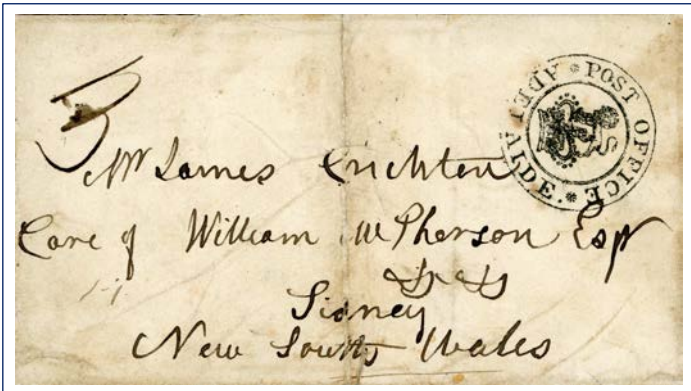 3
POST OFFICE * ADELAIDE. *
Mr James Crichton
Care of William McPherson Esqr
&c &c
Sidney
New South Wales